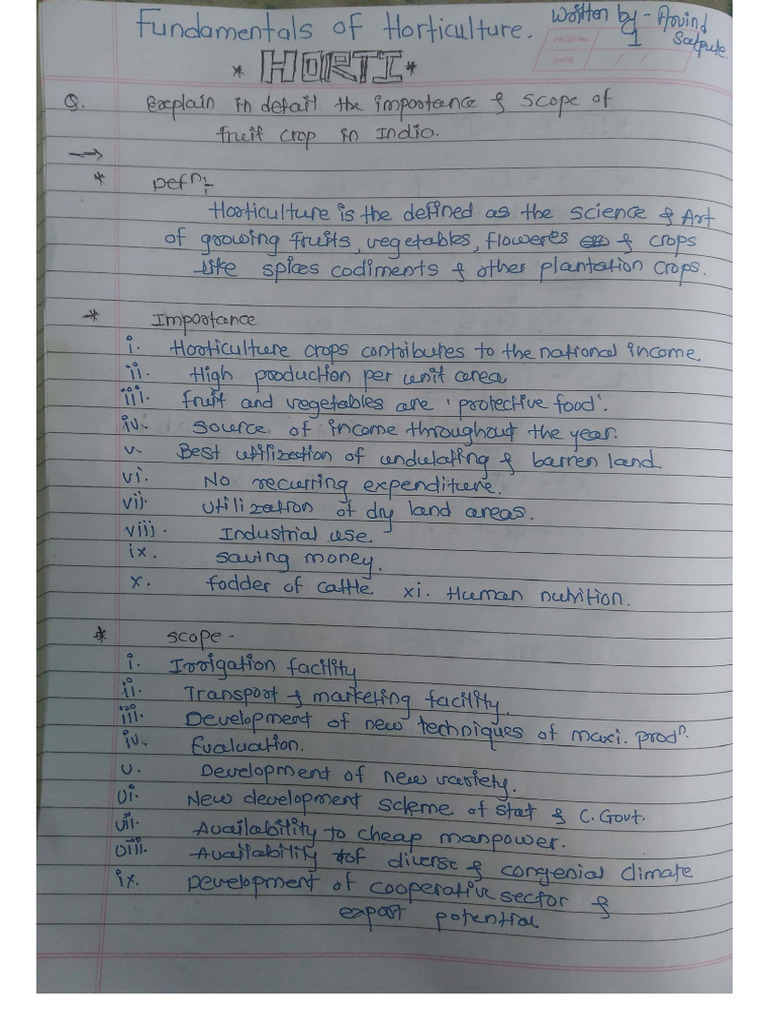 Fundamentals of Horticulture.
Written by - Arvind Satpute
PAGE NO.
1
DATE / /
* HORTI *
Q. Explain in detail the importance & scope of
fruit crop in India.
→
* Defⁿ:-
Horticulture is the defined as the science & Art
of growing fruits, vegetables, floweres & crops
like spices codiments & other plantation crops.
* Importance
i. Horticulture crops contributes to the national income.
ii. High production per unit area
iii. fruit and vegetables are 'protective food'.
iv. Source of income throughout the year.
v. Best utilization of undulating & barren land
vi. No recurring expenditure.
vii. Utilization of dry land areas.
viii. Industrial use.
ix. saving money.
x. fodder of cattle. xi. Human nutrition.
* Scope -
i. Irrigation facility
ii. Transport & marketing facility.
iii. Development of new techniques of maxi. prodⁿ.
iv. Evaluation.
v. Development of new variety.
vi. New development scheme of stat & C. Govt.
vii. Availability to cheap manpower.
viii. Availability of diverse & congenial climate
ix. Development of cooperative sector &
export potential